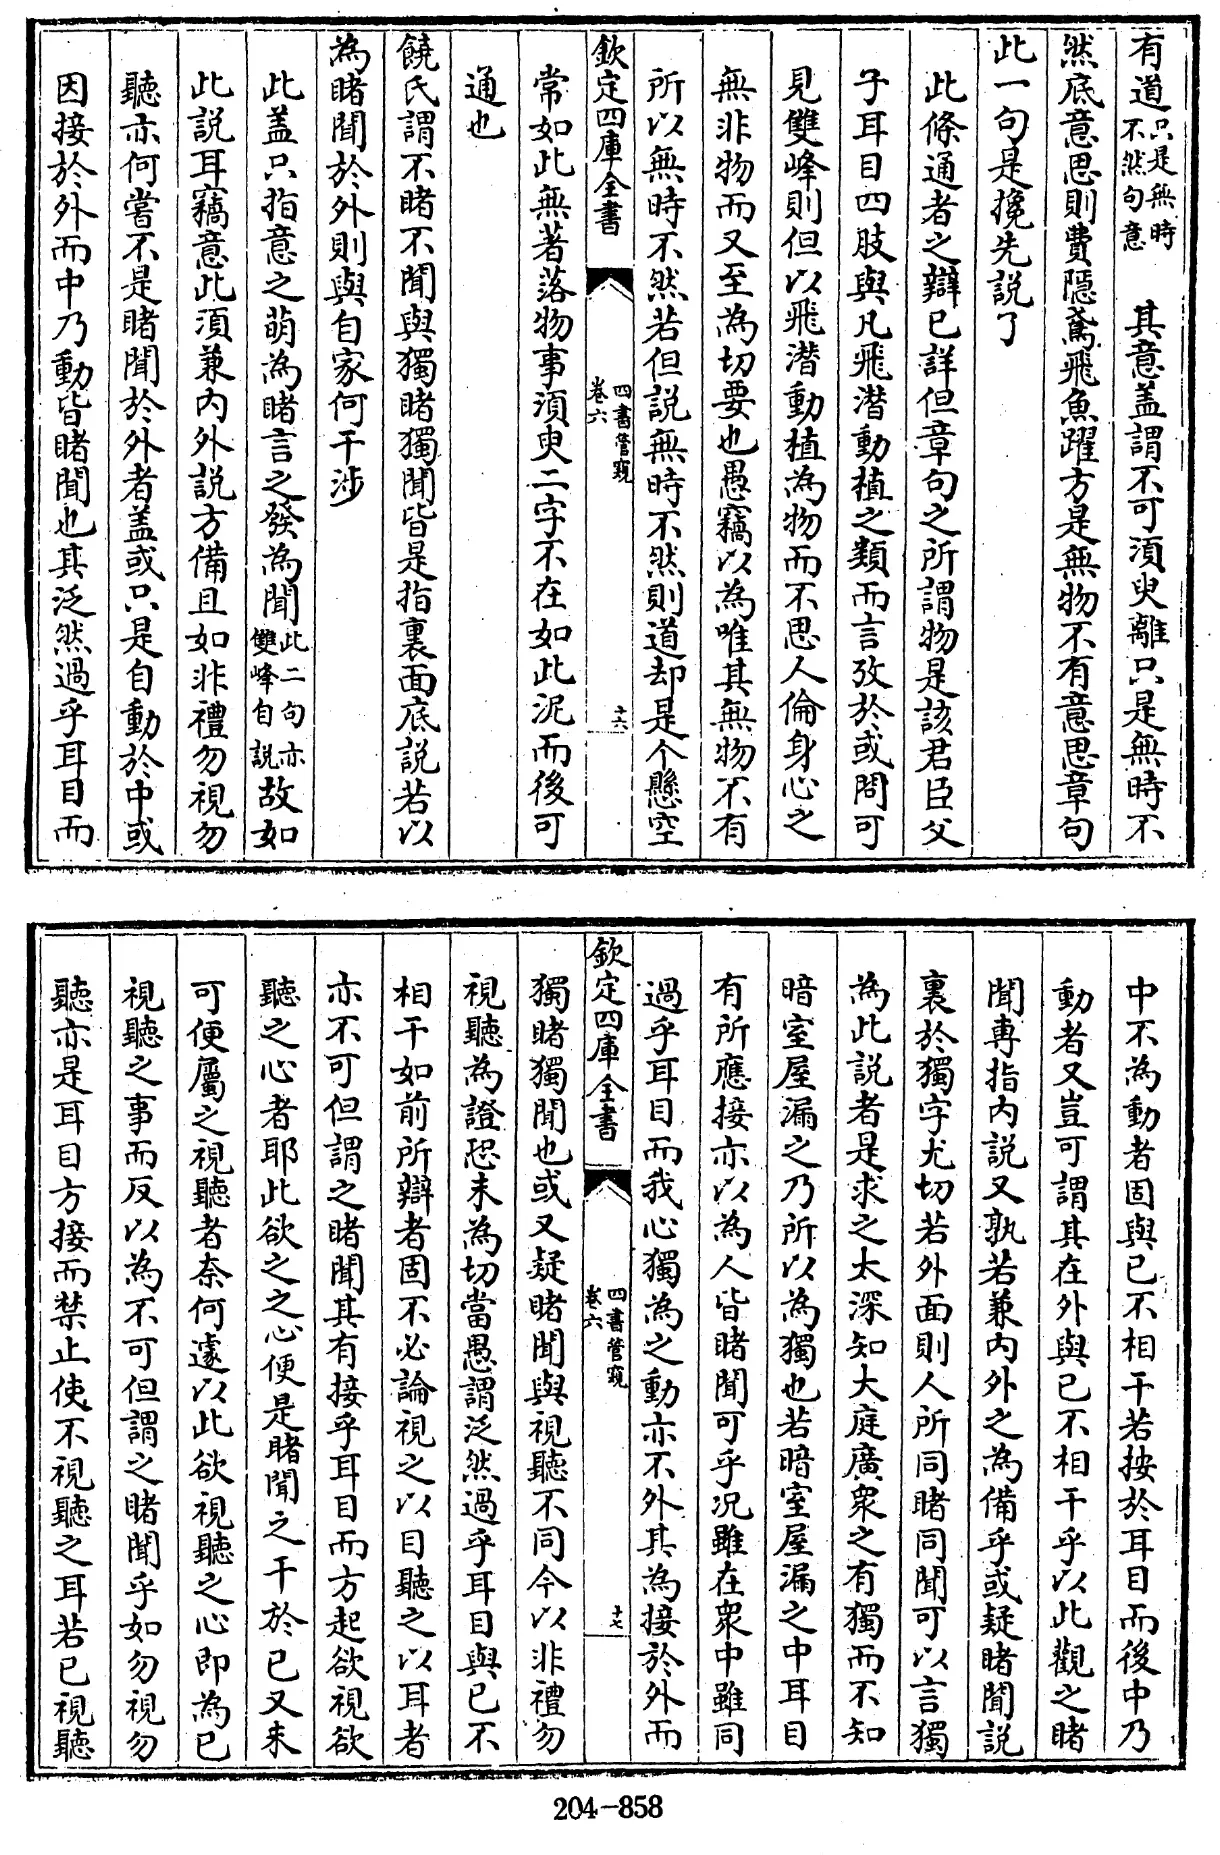 有道只是無時不然句意 其意盖謂不可須臾離只是無時不
然底意思則費隠鳶飛魚躍方是無物不有意思章句
此一句是攙先説了
此條通者之辯已詳但章句之所謂物是該君臣父
子耳目四肢與凡飛潜動植之類而言攷於或問可
見雙峰則但以飛潜動植為物而不思人倫身心之
無非物而又至為切要也愚竊以為唯其無物不有
所以無時不然若但説無時不然則道却是个懸空
欽定四庫全書
四書管窺
卷六
十六
常如此無著落物事須臾二字不在如此泥而後可
通也
饒氏謂不睹不聞與獨睹獨聞皆是指裏面底説若以
為睹聞於外則與自家何干涉
此盖只指意之萌為睹言之發為聞此二句亦雙峰自説故如
此説耳竊意此須兼内外説方備且如非禮勿視勿
聽亦何嘗不是睹聞於外者盖或只是自動於中或
因接於外而中乃動皆睹聞也其泛然過乎耳目而
中不為動者固與已不相干若接於耳目而後中乃
動者又豈可謂其在外與已不相干乎以此觀之睹
聞専指内説又孰若兼内外之為備乎或疑睹聞説
裏於獨字尤切若外面則人所同睹同聞可以言獨
為此説者是求之太深知大庭廣衆之有獨而不知
暗室屋漏之乃所以為獨也若暗室屋漏之中耳目
有所應接亦以為人皆睹聞可乎况雖在衆中雖同
過乎耳目而我心獨為之動亦不外其為接於外而
欽定四庫全書
四書管窺
卷六
十七
獨睹獨聞也或又疑睹聞與視聽不同今以非禮勿
視聽為證恐未為切當愚謂泛然過乎耳目與已不
相干如前所辯者固不必論視之以目聽之以耳者
亦不可但謂之睹聞其有接乎耳目而方起欲視欲
聽之心者耶此欲之之心便是睹聞之干於已又未
可便屬之視聽者奈何遽以此欲視聽之心即為已
視聽之事而反以為不可但謂之睹聞乎如勿視勿
聽亦是耳目方接而禁止使不視聽之耳若已視聽
204-858